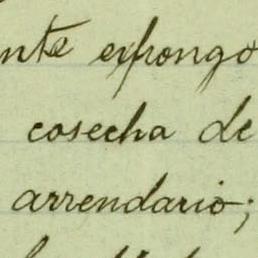 nte expongo
cosecha de
arrendario;